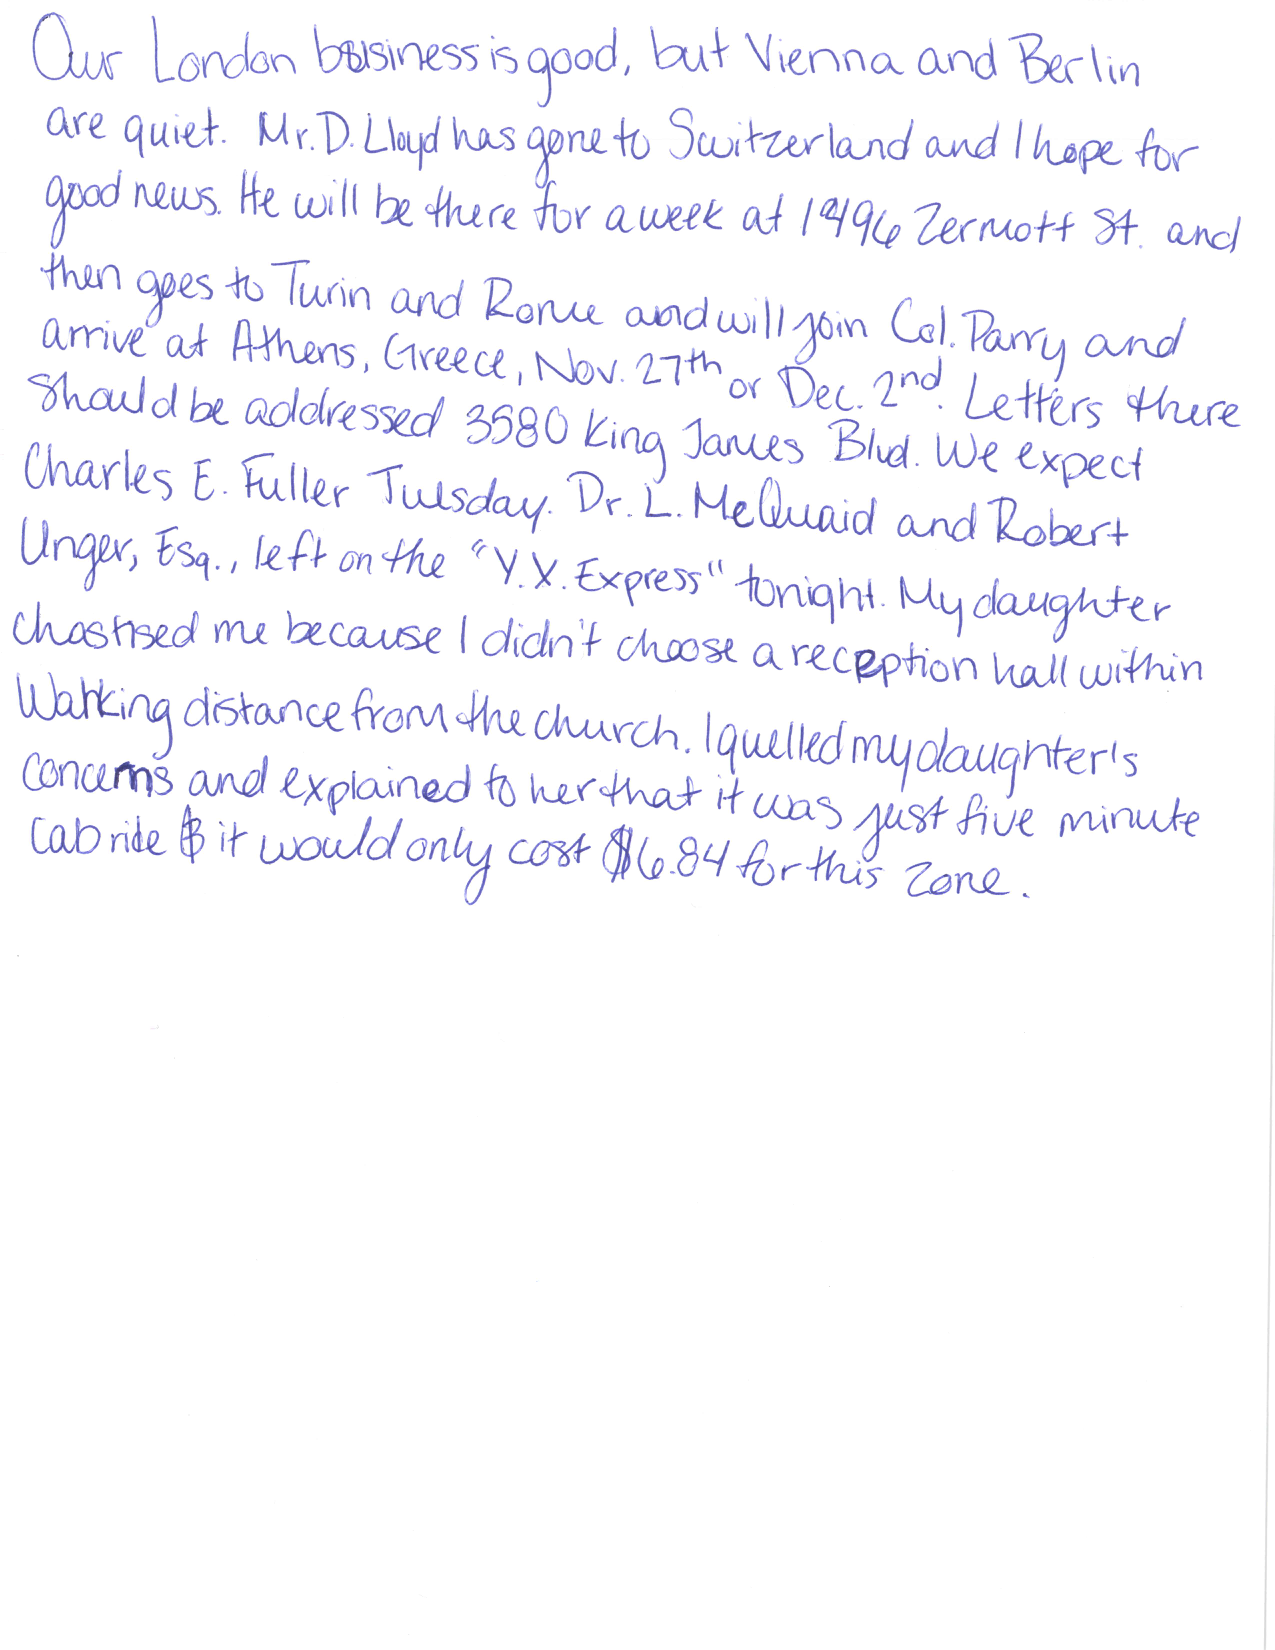 Our London business is good, but Vienna and Berlin
are quiet. Mr. D. Lloyd has gone to Switzerland and I hope for
good news. He will be there for a week at 1496 Zermott St. and
then goes to Turin and Rome and will join Col. Parry and
arrive at Athens, Greece, Nov. 27th or Dec. 2nd. Letters there
should be addressed 3580 King James Blvd. We expect
Charles E. Fuller Tuesday. Dr. L. McQuaid and Robert
Unger, Esq., left on the "Y.X. Express" tonight. My daughter
chastised me because I didn't choose a reception hall within
walking distance from the church. I quelled my daughter's
concerns and explained to her that it was just five minute
cab ride & it would only cost $6.84 for this zone.